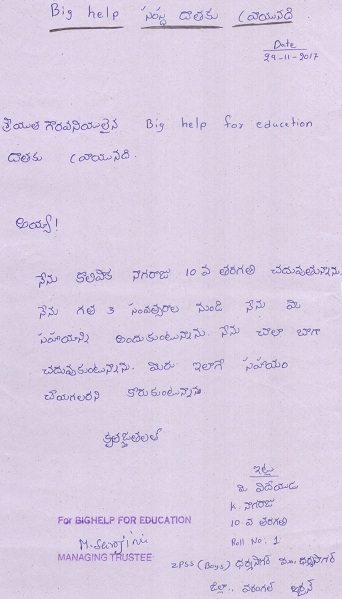 Big help సంస్థ దాతకు వ్రాయునది
Date
29-11-2017
శ్రీయుత గౌరవనియులైన Big help for education
దాతకు వ్రాయునది.
అయ్యా!
నేను కొలిపాక నాగరాజు 10 వ తరగతి చదువుతున్నాను.
నేను గత 3 సంవత్సరాల నుండి నేను మీ
సహాయాన్ని అందుకుంటున్నాను. నేను చాలా బాగా
చదువుకుంటున్నాను. మీరు ఇలాగే సహాయం
చేయగలరని కోరుకుంటున్నాను
కృతజ్ఞతలతో
ఇట్లు
మీ విదేయుడు
K. నాగరాజు
10 వ తరగతి
Roll No: 1
ZPSS (Boys) ధర్మసాగర్ మం. ధర్మసాగర్
జిల్లా.. వరంగల్ అర్బన్
For BIGHELP FOR EDUCATION
M. Sarojini
MANAGING TRUSTEE